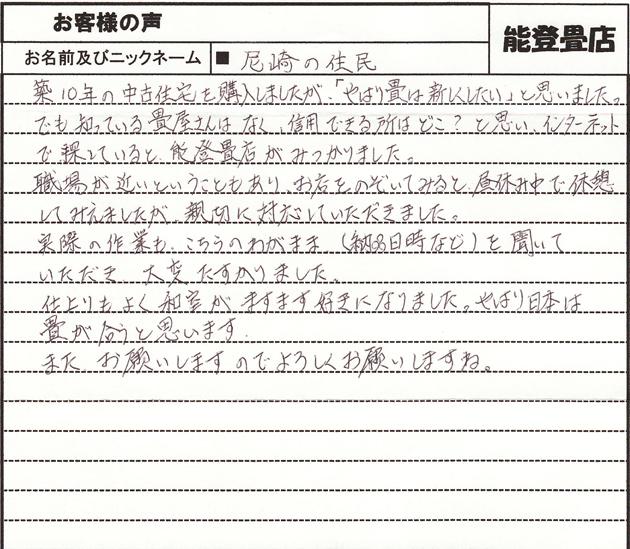 お客様の声
能登畳店
お名前及びニックネーム ■ 尼崎の住民
築10年の中古住宅を購入しましたが、「やはり畳は新しくしたい」と思いました。
でも知っている畳屋さんはなく、信用できる所はどこ？と思い、インターネット
で探していると、能登畳店がみつかりました。
職場が近いということもあり、お店をのぞいてみると、昼休み中で休憩
してみえましたが、親切に対応していただきました。
実際の作業も、こちらのわがまま（納品日時など）を聞いて
いただき、大変たすかりました。
仕上りもよく和室がますます好きになりました。やはり日本は
畳が合うと思います。
また お願いしますのでよろしくお願いしますね。